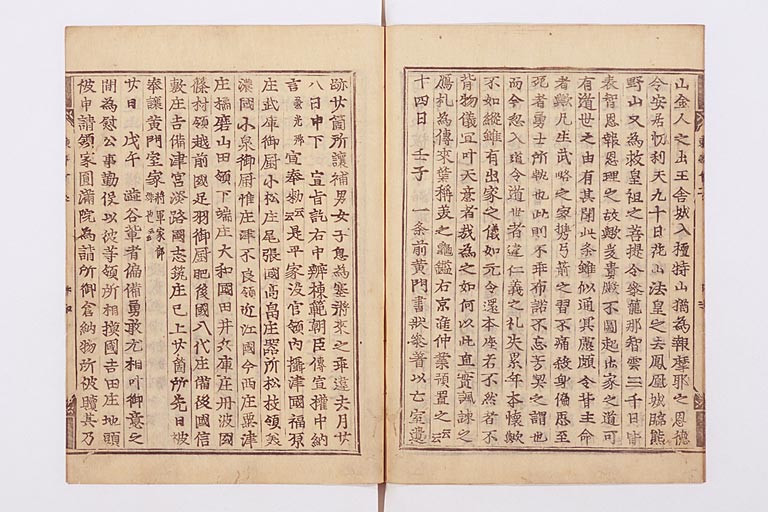 山金人之出王舍城入檀特山猶為報摩耶之恩德
令安居忉利天九十日花山法皇之去鳳凰城臨熊
野山又為救皇祖之菩提令參籠那智雲三千日皆
表智恩報恩理之故歟爰貴殿不圖起出家之道可
有遁世之由有其聞此条雖似通冥慮頗令背主命
者歟凡生武略之家携弓箭之習不痛殺身偏思至
死者勇士所執也此則不乖布諾不忘芳契之謂也
而令忽入道令遁世者違仁義之礼失累年本懷歟
不如縱雖有出家之儀如元令還本座若不然者不
背物儀冝叶天意者哉為之如何以此直實諷諫之
鴈札為傳來葉称美之龜鑑右京進仲業預置之云云
十四日 壬子 一条前黄門書狀參著以亡室遺
跡廿箇所讓補男女子息為塞將來之乖違去月廿
八日申下 宣旨訖右中辨棟範朝臣傳宣權中納
言兼光卿 宣奉勅云云是平家没官領内攝津國福原
庄武庫御厨小松庄尾張國高畠庄器所松枝領美
濃國小泉御厨帷庄津不良領近江國今西庄粟津
庄播磨山田領下端庄大和國田井兵庫庄丹波國
篠村領越前國足羽御厨肥後國八代庄備後國信
敷庄吉備津宮淡路國志筑庄已上廿箇所先日被
奉讓黄門室家將軍家御妹也云云
廿日 戊午 澁谷輩者偏備勇敢尤相叶御意之
間為慰公事勤役以彼等領所相摸國吉田庄地頭
被申請領家圓滿院為請所御倉納物所被贖其乃